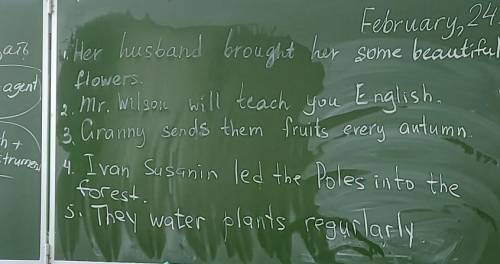 February, 24
1. Her husband brought her some beautiful
flowers.
2. Mr. Wilson will teach you English.
3. Granny sends them fruits every autumn.
4. Ivan Susanin led the Poles into the
forest.
5. They water plants regurlarly.
agent